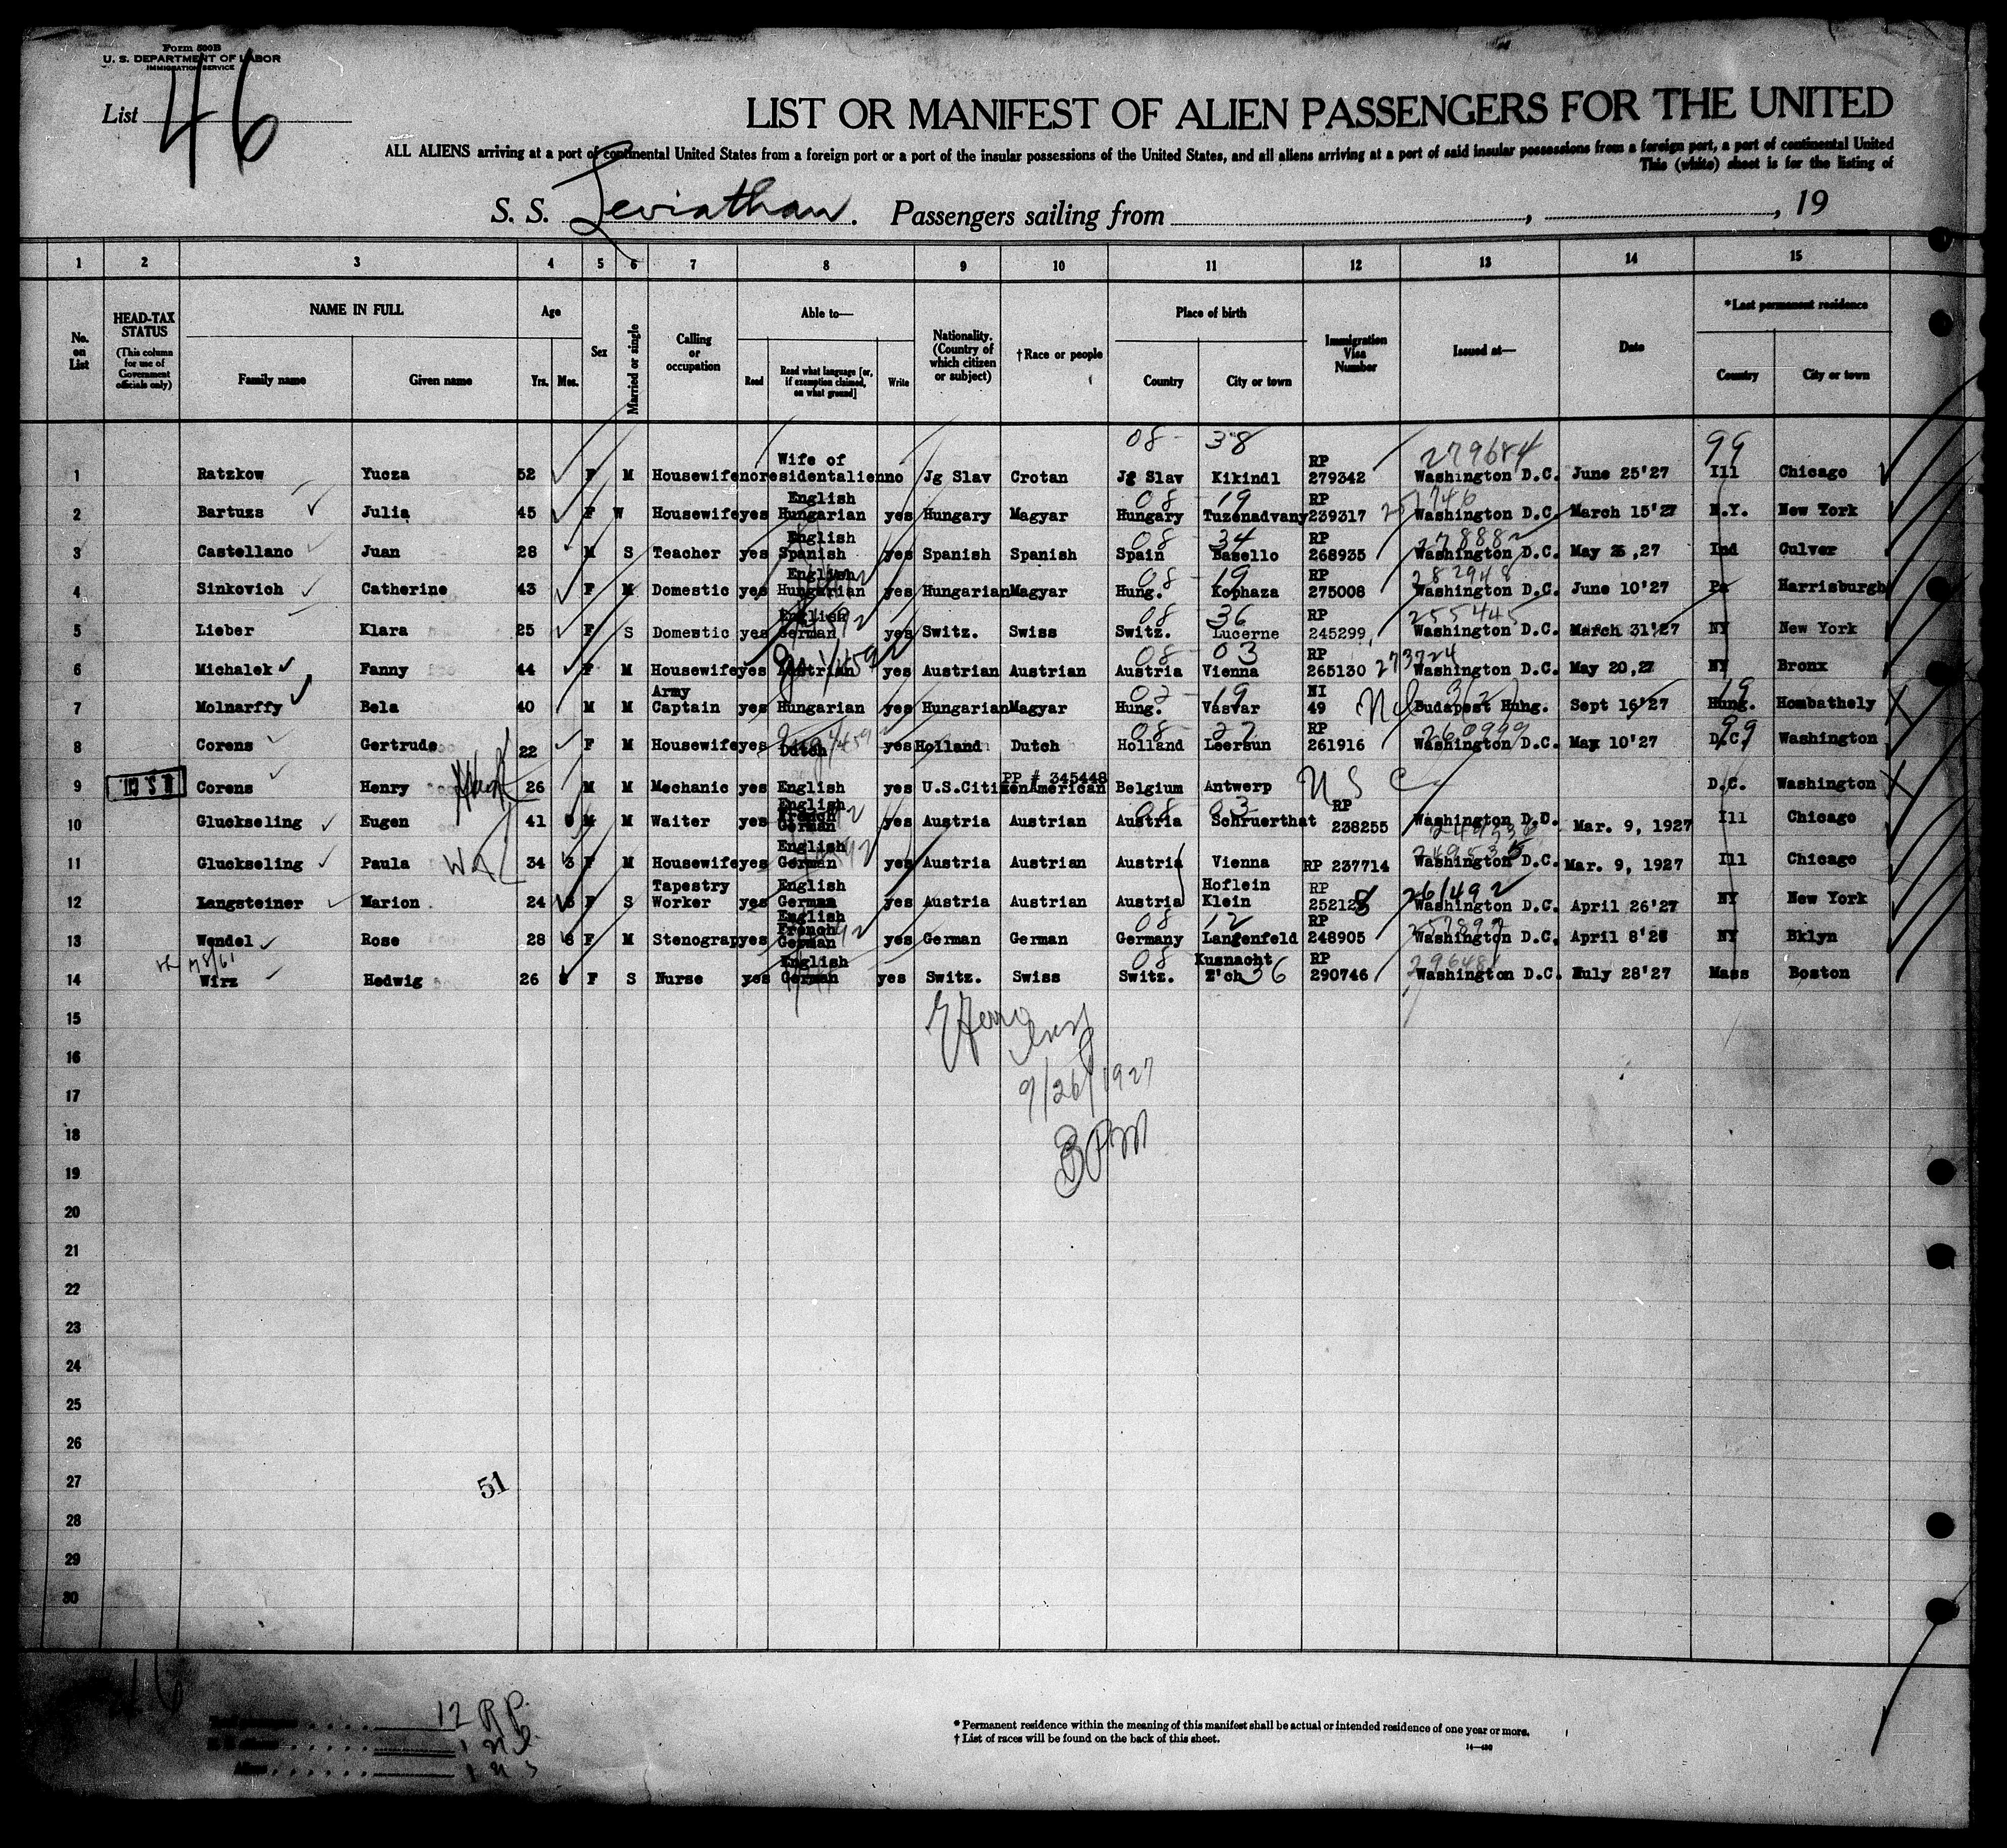 Form 500B
U. S. DEPARTMENT OF LABOR
IMMIGRATION SERVICE
List 46
LIST OR MANIFEST OF ALIEN PASSENGERS FOR THE UNITED
ALL ALIENS arriving at a port of continental United States from a foreign port or a port of the insular possessions of the United States, and all aliens arriving at a port of said insular possessions from a foreign port, a port of continental United
This (white) sheet is for the listing of
S. S. Leviathan. Passengers sailing from , , 19
1 2 3 4 5 6 7 8 9 10 11 12 13 14 15
No. on List
HEAD-TAX STATUS (This column for use of Government officials only)
NAME IN FULL Family name Given name
Age Yrs. Mos.
Sex
Married or single
Calling or occupation
Able to— Read Read what language [or, if exemption claimed, on what ground] Write
Nationality. (Country of which citizen or subject)
† Race or people
Place of birth Country City or town
Immigration Visa Number
Issued at—
Date
*Last permanent residence Country City or town
08 - 38 279684 99
Wife of RP
1 Ratzkow Yucza 52 F M Housewife no residentalien no Jg Slav Crotan Jg Slav Kikindl 279342 Washington D.C. June 25'27 Ill Chicago
English 08 - 19 RP
2 Bartuzs Julia 45 F W Housewife yes Hungarian yes Hungary Magyar Hungary Tuzenadvany 239317 Washington D.C. March 15'27 N.Y. New York
English 08 - 34 RP
3 Castellano Juan 28 M S Teacher yes Spanish yes Spanish Spanish Spain Bazello 268935 Washington D.C. May ,27 Ind Culver
English 08 - 19 RP 282948
4 Sinkovich Catherine 43 F M Domestic yes Hungarian yes Hungarian Magyar Hung. Kophaza 275008 Washington D.C. June 10'27 Pa Harrisburgh
English 08 36 RP 255445
5 Lieber Klara 25 F S Domestic yes German yes Switz. Swiss Switz. Lucerne 245299 Washington D.C. March 31'27 NY New York
08 - 03 RP 273724
6 Michalek Fanny 44 F M Housewife yes Austrian yes Austrian Austrian Austria Vienna 265130 Washington D.C. May 20,27 NY Bronx
Army 19 NI 19
7 Molnarffy Bela 40 M M Captain yes Hungarian yes Hungarian Magyar Hung. Vasvar 49 Budapest Hung. Sept 16'27 Hung. Hombathely
08 - 27 RP 260999 99
8 Corens Gertrude 22 F M Housewife yes Dutch yes Holland Dutch Holland Leerbun 261916 Washington D.C. May 10'27 D.C. Washington
PP # 345448
9 Corens Henry 26 M M Mechanic yes English yes U.S.Citizen American Belgium Antwerp U S C D.C. Washington
English French 08 - 03 RP
10 Gluckseling Eugen 41 M M Waiter yes German yes Austria Austrian Austria Schruerthat 238255 Washington D.C. Mar. 9, 1927 Ill Chicago
English 249535
11 Gluckseling Paula 34 3 F M Housewife yes German yes Austria Austrian Austria Vienna RP 237714 Washington D.C. Mar. 9, 1927 Ill Chicago
Tapestry English Hoflein RP 261492
12 Langsteiner Marion 24 F S Worker yes German yes Austria Austrian Austria Klein 252128 Washington D.C. April 26'27 NY New York
English French 08 12 RP 257892
13 Wendel Rose 28 F M Stenograp yes German yes German German Germany Langenfeld 248905 Washington D.C. April 8'2 NY Bklyn
English 08 Kusnacht RP
14 Wirz Hedwig 26 F S Nurse yes German yes Switz. Swiss Switz. Z'ch 36 290746 Washington D.C. July 28'27 Mass Boston
15
16
9/26/1927
17
18
3 PM
19
20
21
22
23
24
25
26
27
51
28
29
30
12 RP
* Permanent residence within the meaning of this manifest shall be actual or intended residence of one year or more.
† List of races will be found on the back of this sheet.